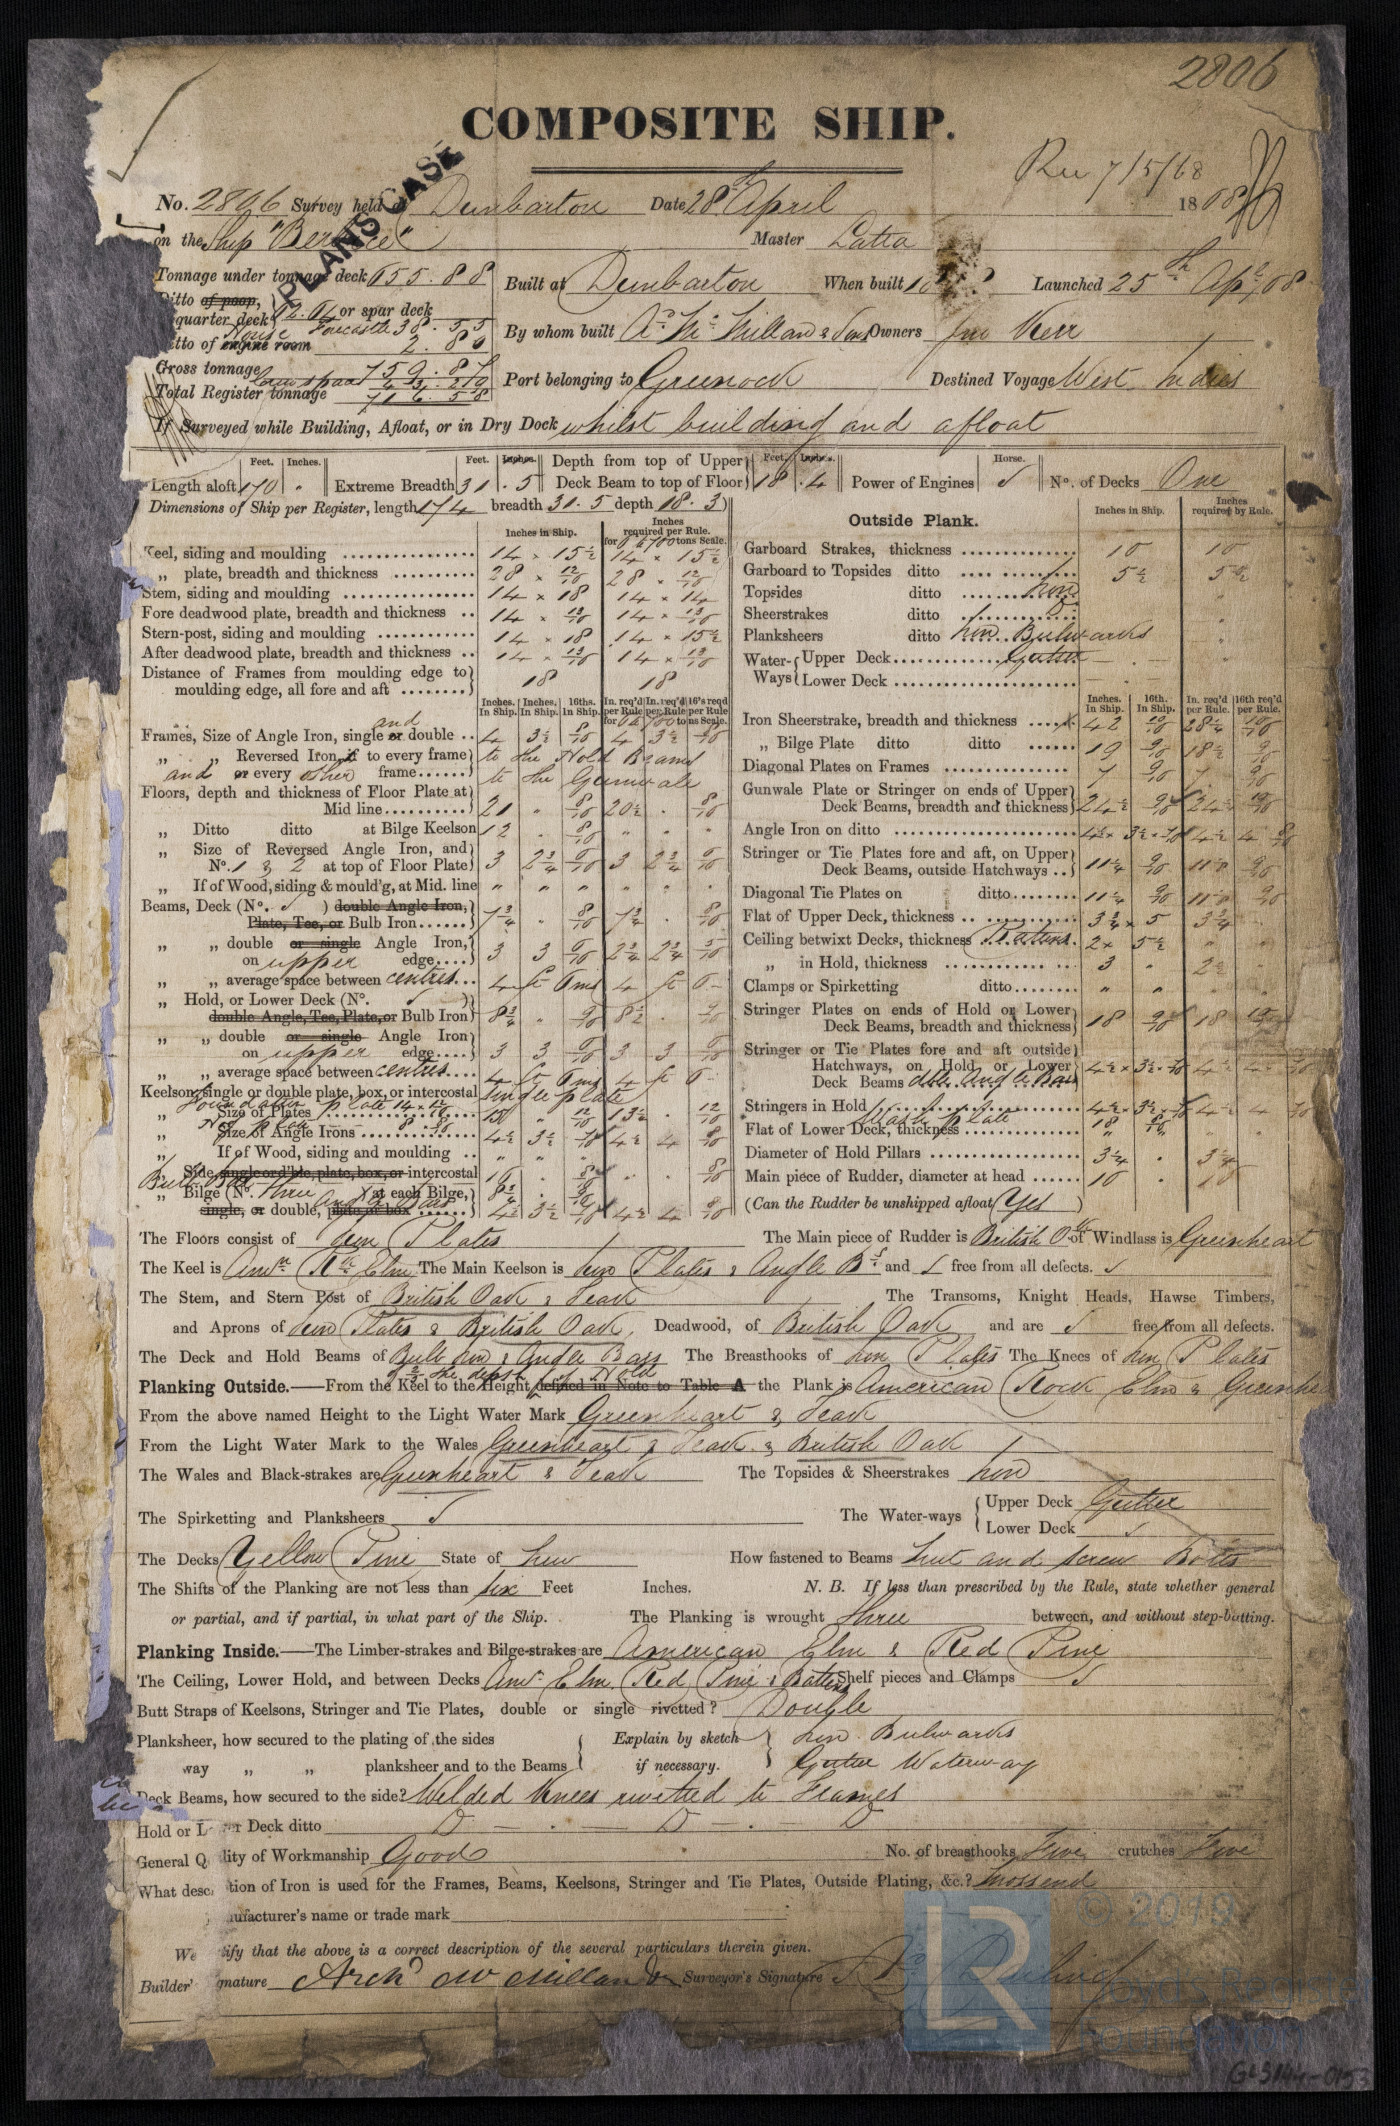 2806
COMPOSITE SHIP.
PLANS CASE
Rec 7/5/68
No. 2806 Survey held at Dumbarton Date 28th April 1868
on the Ship "Berbice" Master Latta
Tonnage under tonnage deck 655.88 Built at Dumbarton When built 1868 Launched 25th Apl 68
Ditto of poop, or spar deck
quarter deck Forecastle 38.55 By whom built A. McMillan & Sons Owners Jno Kerr
tto of engine room 2.80
Gross tonnage 759.87 Port belonging to Greenock Destined Voyage West Indies
Total Register tonnage 716.58
If Surveyed while Building, Afloat, or in Dry Dock whilst building and afloat
Feet. Inches. Feet. Inches. Feet. Inches. Horse.
Length aloft 170 Extreme Breadth 31 .5 Depth from top of Upper Deck Beam to top of Floor 18 .4 Power of Engines No. of Decks One
Dimensions of Ship per Register, length 174 breadth 31.5 depth 18.3
Inches in Ship. Inches required per Rule. for 6 to 700 tons Scale.
Keel, siding and moulding 14 × 15½ 14 × 15½
„ plate, breadth and thickness 28 × 12/16 28 × 12/16
Stem, siding and moulding 14 × 18 14 × 14
Fore deadwood plate, breadth and thickness 14 × 13/16 14 × 13/16
Stern-post, siding and moulding 14 × 18 14 × 15½
After deadwood plate, breadth and thickness 14 × 13/16 14 × 13/16
Distance of Frames from moulding edge to moulding edge, all fore and aft 18 18
Inches. In Ship. Inches. In Ship. 16ths. In Ship. In. req'd per Rule In. req'd per Rule 16's req'd per Rule
Frames, Size of Angle Iron, single or and double 4 3½ 8/16 4 3½ 8/16
„ „ Reversed Iron, if to every frame to the Hold Beams
and or every other frame to the Gunwale
Floors, depth and thickness of Floor Plate at Mid line 21 " 8/16 20½ . 8/16
„ Ditto ditto at Bilge Keelson 12 . 8/16 " " "
„ Size of Reversed Angle Iron, and No. 1 & 2 at top of Floor Plate 3 2¾ 6/16 3 2¾ 6/16
„ If of Wood, siding & mould'g, at Mid. line
Beams, Deck (No. ) double Angle Iron, Plate, Tee, or Bulb Iron 7¾ . 8/16 7¾ . 8/16
„ „ double or single Angle Iron, on upper edge 3 3 6/16 2¾ 2¾ 5/16
„ „ average space between centres 4 ft 6 ins 4 ft 6
„ Hold, or Lower Deck (No. )
double Angle, Tee, Plate, or Bulb Iron 8¾ . 9/16 8½ . 9/16
„ „ double or single Angle Iron on upper edge 3 3 6/16 3 3 6/16
„ „ average space between centres 4 ft 6 ins 4 ft 6
Keelson, single or double plate, box, or intercostal Single plate
„ Size of Plates 12/16 13½ . 12/16
„ Size of Angle Irons 4½ 3½ 4½ 4 8/16
„ If of Wood, siding and moulding
„ Side, single or d'ble, plate, box, or intercostal 16 . 8/16 . . 8/16
Bulb Bar
„ Bilge (No. three ) at each Bilge, 8¾ . 9/16
single, or double, plate or box Angle Bars 4½ 3½ 4½ 4 8/16
Outside Plank. Inches in Ship. Inches required by Rule.
Garboard Strakes, thickness 10 10
Garboard to Topsides ditto 5½ 5½
Topsides ditto Iron
Sheerstrakes ditto Do
Planksheers ditto Iron Bulwarks
Water-Ways { Upper Deck Gutter
Lower Deck
Inches. In Ship. 16th. In Ship. In. req'd per Rule 16th req'd per Rule
Iron Sheerstrake, breadth and thickness 42 10/16 28½ 10/16
„ Bilge Plate ditto ditto 19 9/16 18½ 9/16
Diagonal Plates on Frames 7 9/16 7 9/16
Gunwale Plate or Stringer on ends of Upper Deck Beams, breadth and thickness 24½ 9/16 24½ 10/16
Angle Iron on ditto 4½ × 3½ 4½ 4 8/16
Stringer or Tie Plates fore and aft, on Upper Deck Beams, outside Hatchways 11¼ 9/16 9/16
Diagonal Tie Plates on ditto 11¼ 9/16 9/16
Flat of Upper Deck, thickness 3¾ × 5 3¾
Ceiling betwixt Decks, thickness Battens 2 × 5½
„ in Hold, thickness 3 " 2½
Clamps or Spirketting ditto
Stringer Plates on ends of Hold or Lower Deck Beams, breadth and thickness 18 9/16 18 10/16
Stringer or Tie Plates fore and aft outside Hatchways, on Hold or Lower Deck Beams dble. Angle Bars 4½ × 3½ 4½ 4
Stringers in Hold 4½ × 3½ 4½ 4
Flat of Lower Deck, thickness Wash plate 18
Diameter of Hold Pillars 3¼ . 3¼
Main piece of Rudder, diameter at head 10 . 10
(Can the Rudder be unshipped afloat) Yes
The Floors consist of Iron Plates The Main piece of Rudder is British Oak of Windlass is Greenheart
The Keel is Amn Rk Elm The Main Keelson is Iron Plates & Angle Brs and free from all defects.
The Stem, and Stern Post of British Oak & Teak The Transoms, Knight Heads, Hawse Timbers,
and Aprons of Iron Plates & British Oak. Deadwood, of British Oak and are free from all defects.
The Deck and Hold Beams of Bulb Iron & Angle Bars The Breasthooks of Iron Plates The Knees of Iron Plates
of ⅔ the depth of Hold
Planking Outside.—From the Keel to the Height defined in Note to Table A the Plank is American Rock Elm & Greenhe
From the above named Height to the Light Water Mark Greenheart & Teak
From the Light Water Mark to the Wales Greenheart & Teak & British Oak
The Wales and Black-strakes are Greenheart & Teak The Topsides & Sheerstrakes Iron
The Spirketting and Planksheers The Water-ways { Upper Deck Gutter
Lower Deck
The Decks Yellow Pine State of New How fastened to Beams Nut and Screw Bolts
The Shifts of the Planking are not less than six Feet Inches. N. B. If less than prescribed by the Rule, state whether general
or partial, and if partial, in what part of the Ship. The Planking is wrought three between, and without step-butting.
Planking Inside.—The Limber-strakes and Bilge-strakes are American Elm & Red Pine
The Ceiling, Lower Hold, and between Decks Amn. Elm, Red Pine & Battens Shelf pieces and Clamps
Butt Straps of Keelsons, Stringer and Tie Plates, double or single rivetted? Double
Planksheer, how secured to the plating of the sides { Explain by sketch } Iron Bulwarks
way „ „ planksheer and to the Beams { if necessary. } Gutter Waterway
Deck Beams, how secured to the side? Welded Knees rivetted to Frames
Hold or L er Deck ditto D — . — D — . — D
General Q lity of Workmanship Good No. of breasthooks Five crutches Five
What desc tion of Iron is used for the Frames, Beams, Keelsons, Stringer and Tie Plates, Outside Plating, &c.? Mossend
nufacturer's name or trade mark
We tify that the above is a correct description of the several particulars therein given.
Builder' gnature Archd McMillan & Son Surveyor's Signature
LR © 2019
Lloyd's Register
Foundation
GLS144-0153